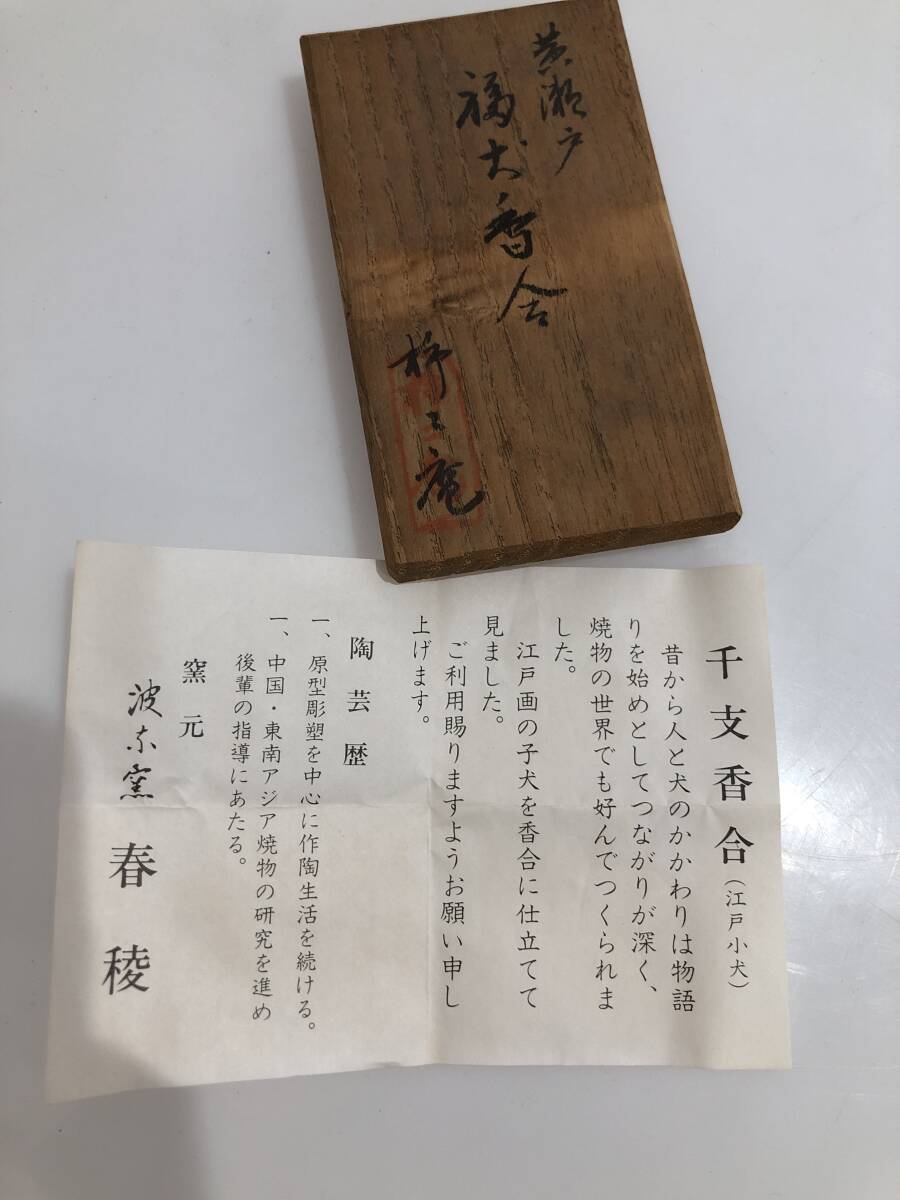 黄瀬戸
福犬香合
柿こ庵
千支香合(江戸小犬)
昔から人と犬のかかわりは物語
りを始めとしてつながりが深く、
焼物の世界でも好んでつくられま
した。
江戸画の子犬を香合に仕立てて
見ました。
ご利用賜りますようお願い申し
上げます。
陶芸歴
一、原型彫塑を中心に作陶生活を続ける。
一、中国・東南アジア焼物の研究を進め
後輩の指導にあたる。
窯元
波奈窯 春稜